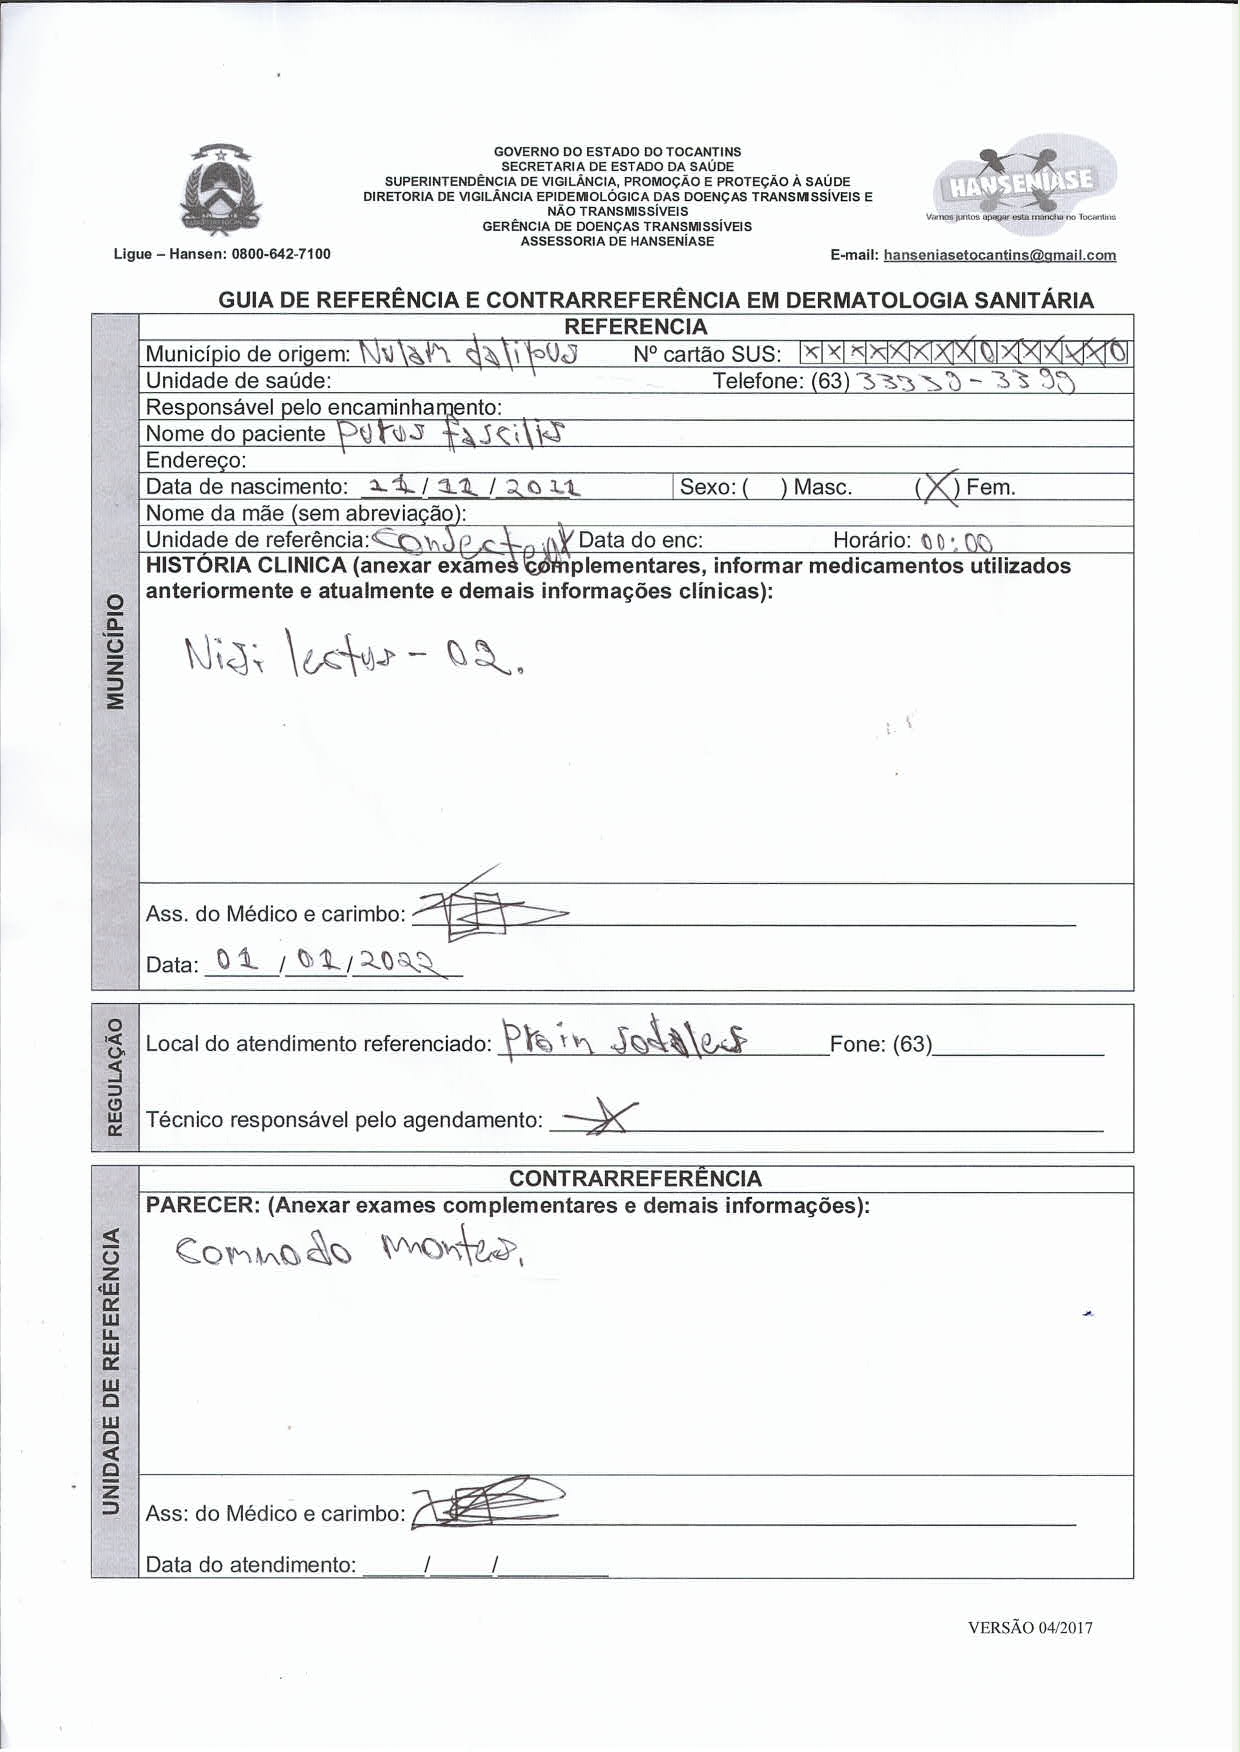 GOVERNO DO ESTADO DO TOCANTINS
SECRETARIA DE ESTADO DA SAÚDE
SUPERINTENDÊNCIA DE VIGILÂNCIA, PROMOÇÃO E PROTEÇÃO À SAÚDE
DIRETORIA DE VIGILÂNCIA EPIDEMIOLÓGICA DAS DOENÇAS TRANSMISSÍVEIS E
NÃO TRANSMISSÍVEIS
GERÊNCIA DE DOENÇAS TRANSMISSÍVEIS
ASSESSORIA DE HANSENÍASE
HANSENÍASE
Vamos juntos apagar esta mancha no Tocantins
Ligue – Hansen: 0800-642-7100 E-mail: hanseniasetocantins@gmail.com
GUIA DE REFERÊNCIA E CONTRARREFERÊNCIA EM DERMATOLOGIA SANITÁRIA
MUNICÍPIO
REFERENCIA
Município de origem: Nulam Nº cartão SUS: X X X X X X X X 0 X X X X X 0
Unidade de saúde: Telefone: (63) 33339-3399
Responsável pelo encaminhamento:
Nome do paciente Purus fascilis
Endereço:
Data de nascimento: 11/11/2011 Sexo: ( ) Masc. (X) Fem.
Nome da mãe (sem abreviação):
Unidade de referência: Data do enc: Horário: 00:00
HISTÓRIA CLINICA (anexar exames complementares, informar medicamentos utilizados
anteriormente e atualmente e demais informações clínicas):
Nisi lectus - 02.
Ass. do Médico e carimbo:
Data: 01/01/2022
REGULAÇÃO
Local do atendimento referenciado: Proin sodales Fone: (63)
Técnico responsável pelo agendamento:
UNIDADE DE REFERÊNCIA
CONTRARREFERÊNCIA
PARECER: (Anexar exames complementares e demais informações):
Commodo montes.
Ass: do Médico e carimbo:
Data do atendimento: / /
VERSÃO 04/2017